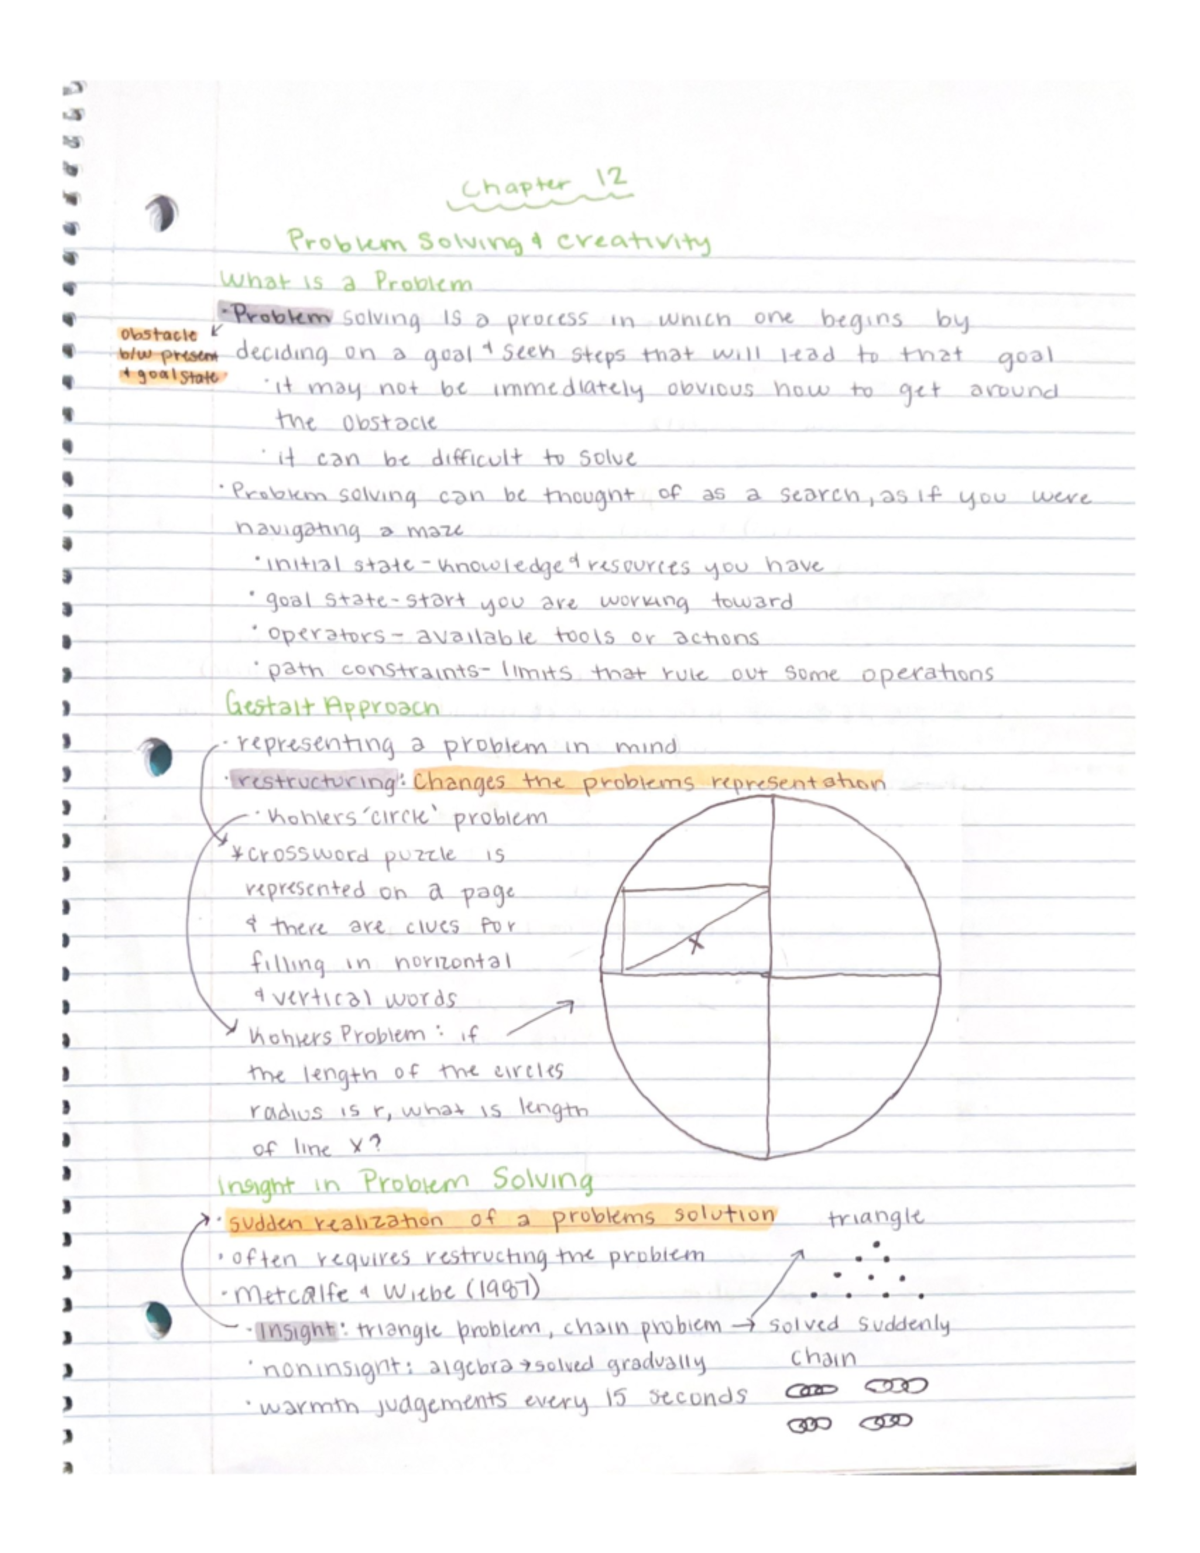 Chapter 12
Problem Solving & Creativity
What is a Problem
·Problem solving is a process in which one begins by
obstacle
b/w present
& goal state
deciding on a goal & seek steps that will lead to that goal
·it may not be immediately obvious how to get around
the obstacle
·it can be difficult to solve
·Problem solving can be thought of as a search, as if you were
navigating a maze
·initial state - knowledge & resources you have
·goal state - start you are working toward
·operators - available tools or actions
·path constraints - limits that rule out some operations
Gestalt Approach
·representing a problem in mind
·restructuring: Changes the problems representation
·Kohlers 'circle' problem
*crossword puzzle is
represented on a page
& there are clues for
filling in horizontal
& vertical words
x
Kohlers Problem: if
the length of the circles
radius is r, what is length
of line x?
Insight in Problem Solving
·sudden realization of a problems solution
triangle
·often requires restructing the problem
·Metcalfe & Wiebe (1987)
·Insight: triangle problem, chain problem → solved suddenly
·noninsight: algebra → solved gradually
chain
·warmth judgements every 15 seconds